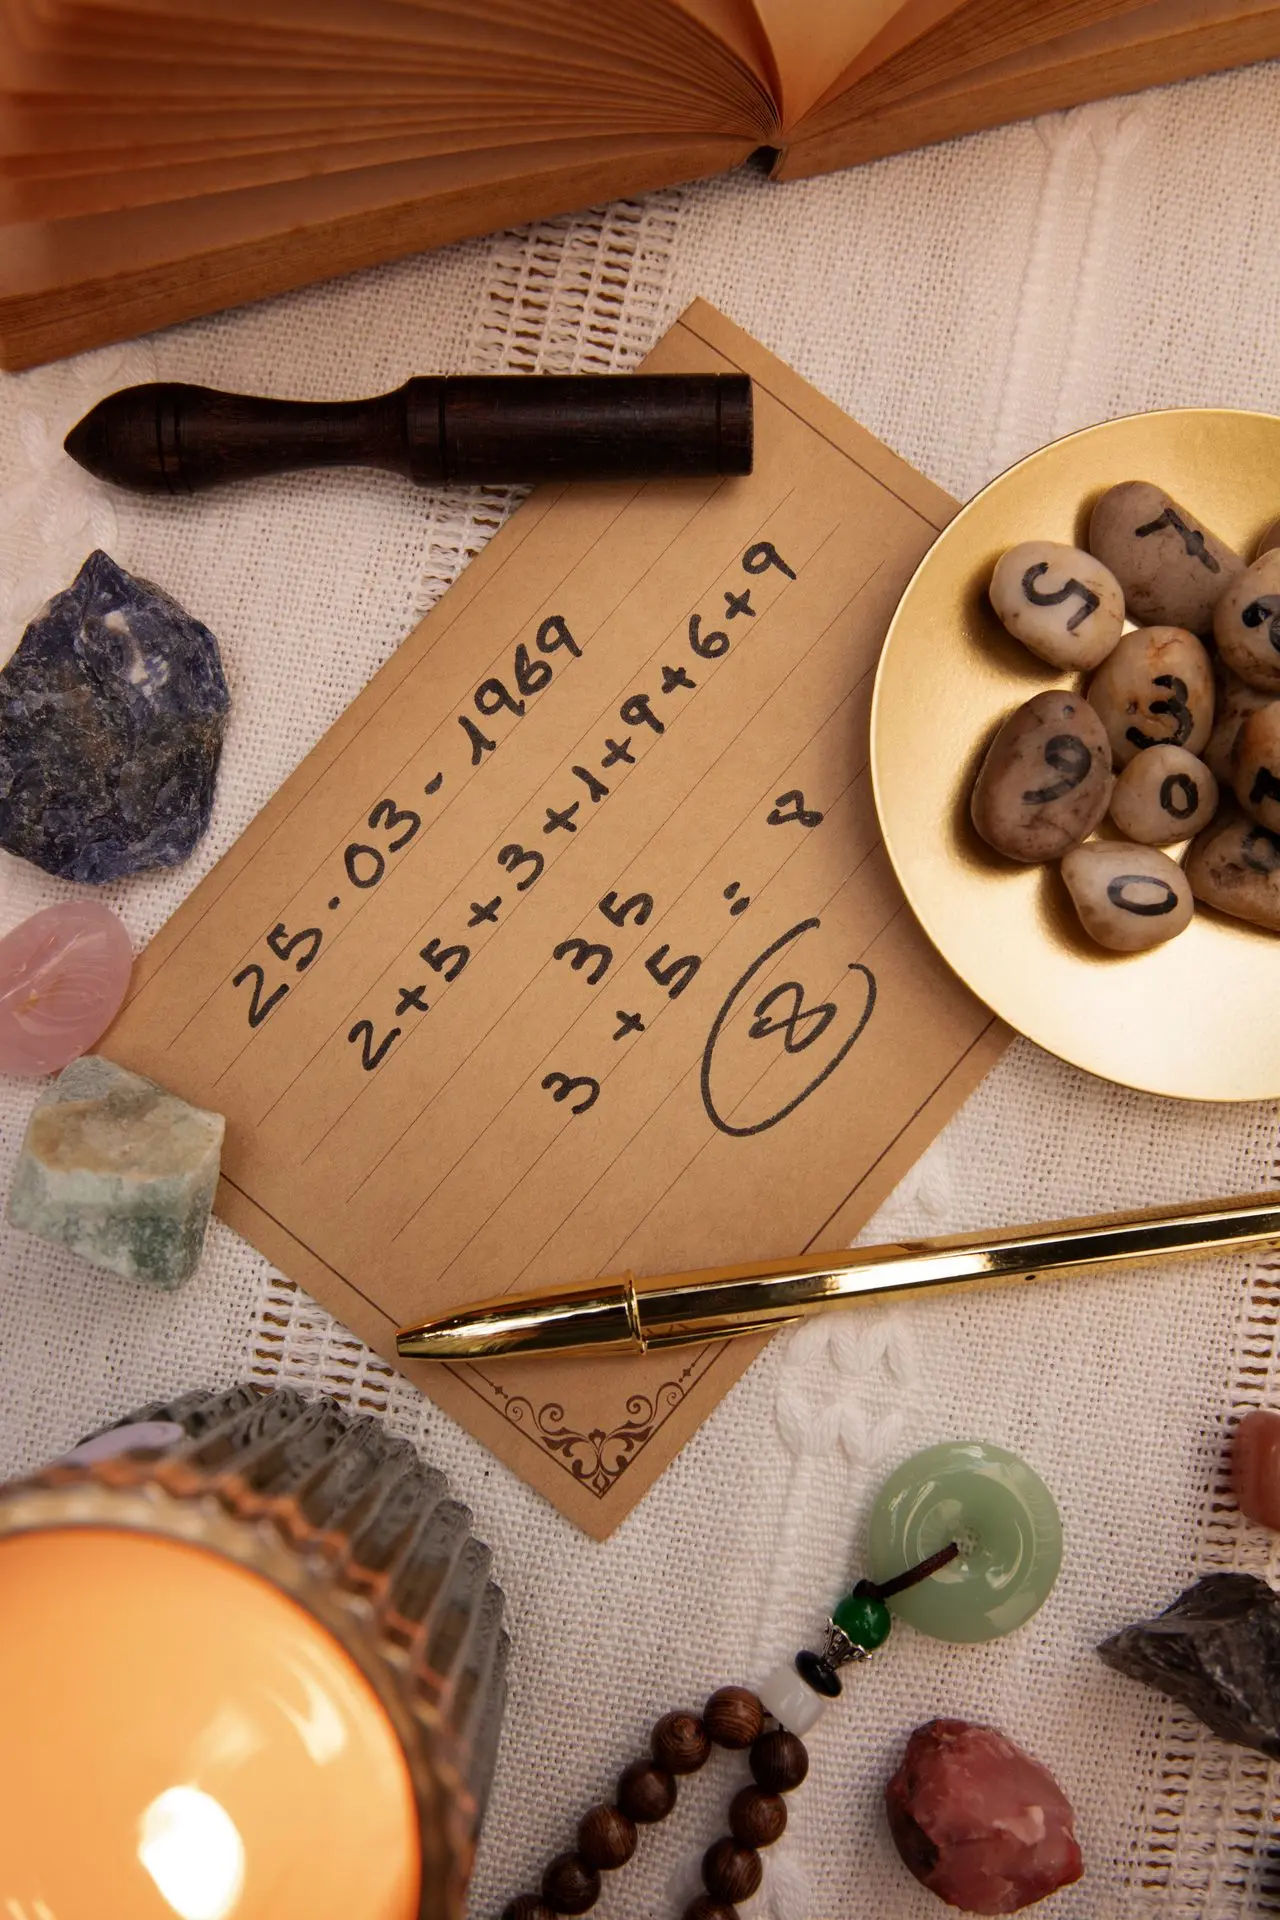 25.03-1969
2+5+3+1+9+6+9
35
3+5=8
8
7
5
3
9
0
0